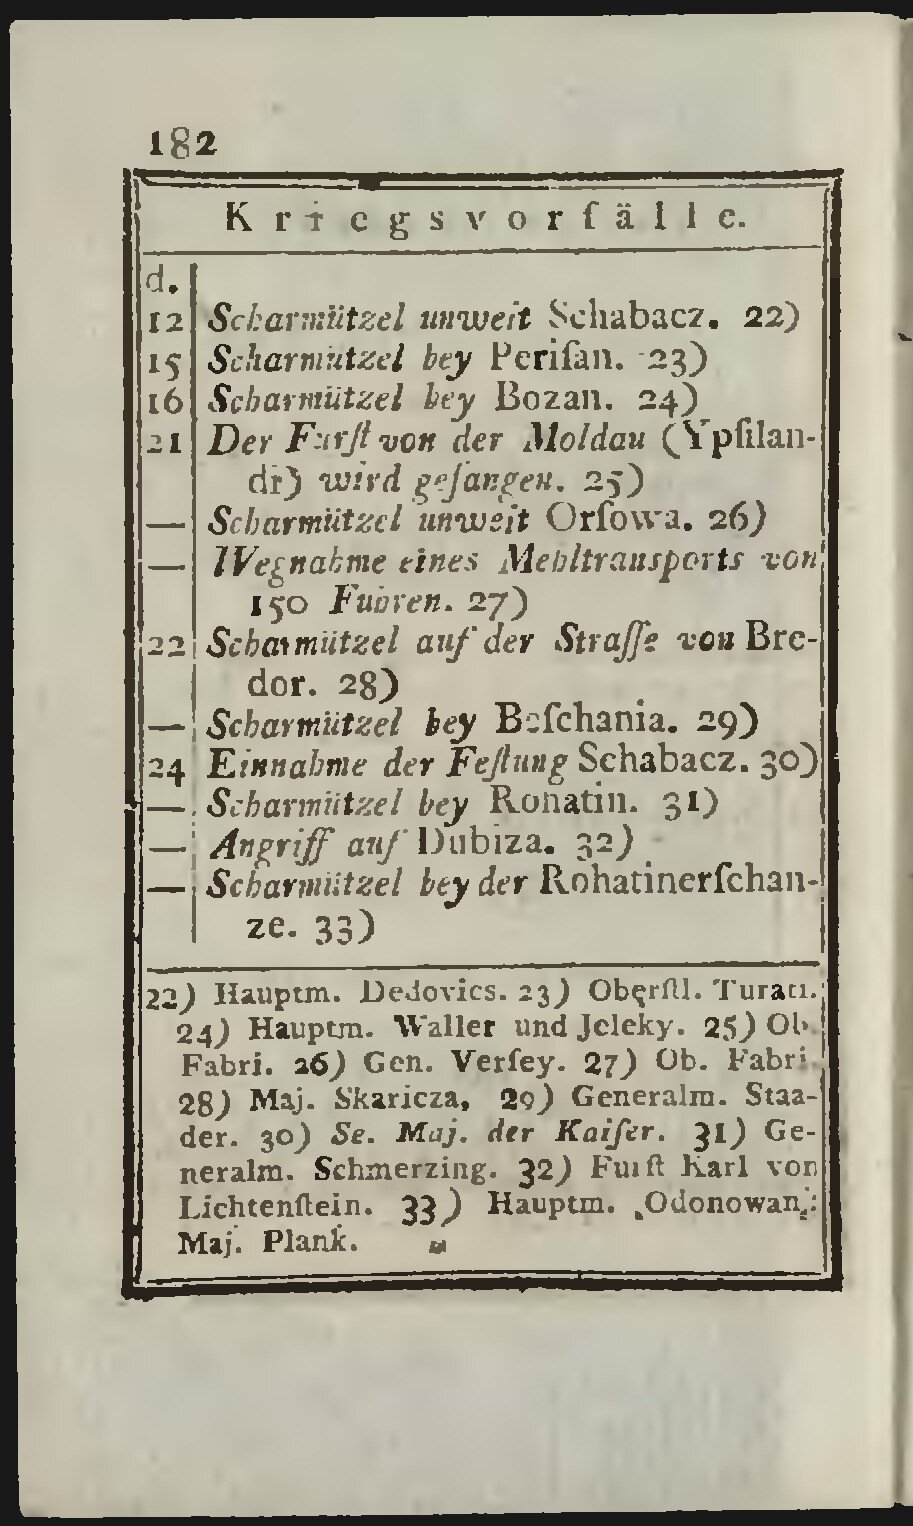 182
Kriegsvorfälle.
d.
12 Scharmützel unweit Schabacz. 22)
15 Scharmützel bey Periſan. 23)
16 Scharmützel bey Bozan. 24)
21 Der Fürſt von der Moldau (Ypſilan-
di) wird gefangen. 25)
— Scharmützel unweit Orſowa. 26)
— Wegnahme eines Mehltransports von
150 Fuhren. 27)
22 Scharmützel auf der Straſſe von Bre-
dor. 28)
— Scharmützel bey Beſchania. 29)
24 Einnahme der Feſtung Schabacz. 30)
— Scharmützel bey Rohatin. 31)
— Angriff auf Dubiza. 32)
— Scharmützel bey der Rohatinerſchan-
ze. 33)
22) Hauptm. Dedovics. 23) Oberſtl. Turati.
24) Hauptm. Waller und Jeleky. 25) Ob.
Fabri. 26) Gen. Verſey. 27) Ob. Fabri.
28) Maj. Skaricza, 29) Generalm. Staa-
der. 30) Se. Maj. der Kaiſer. 31) Ge-
neralm. Schmerzing. 32) Fürſt Karl von
Lichtenſtein. 33) Hauptm. Odonowan,
Maj. Plank.